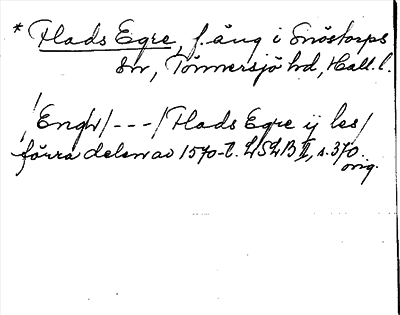 * Flads Egre, f. äng i Snöstorps
sn, Tönnersjö hd, Hall. l.
Engh/---/Flads Egre ij les/
förra delen av 1570-t. LSLB II, s. 370.
orig.